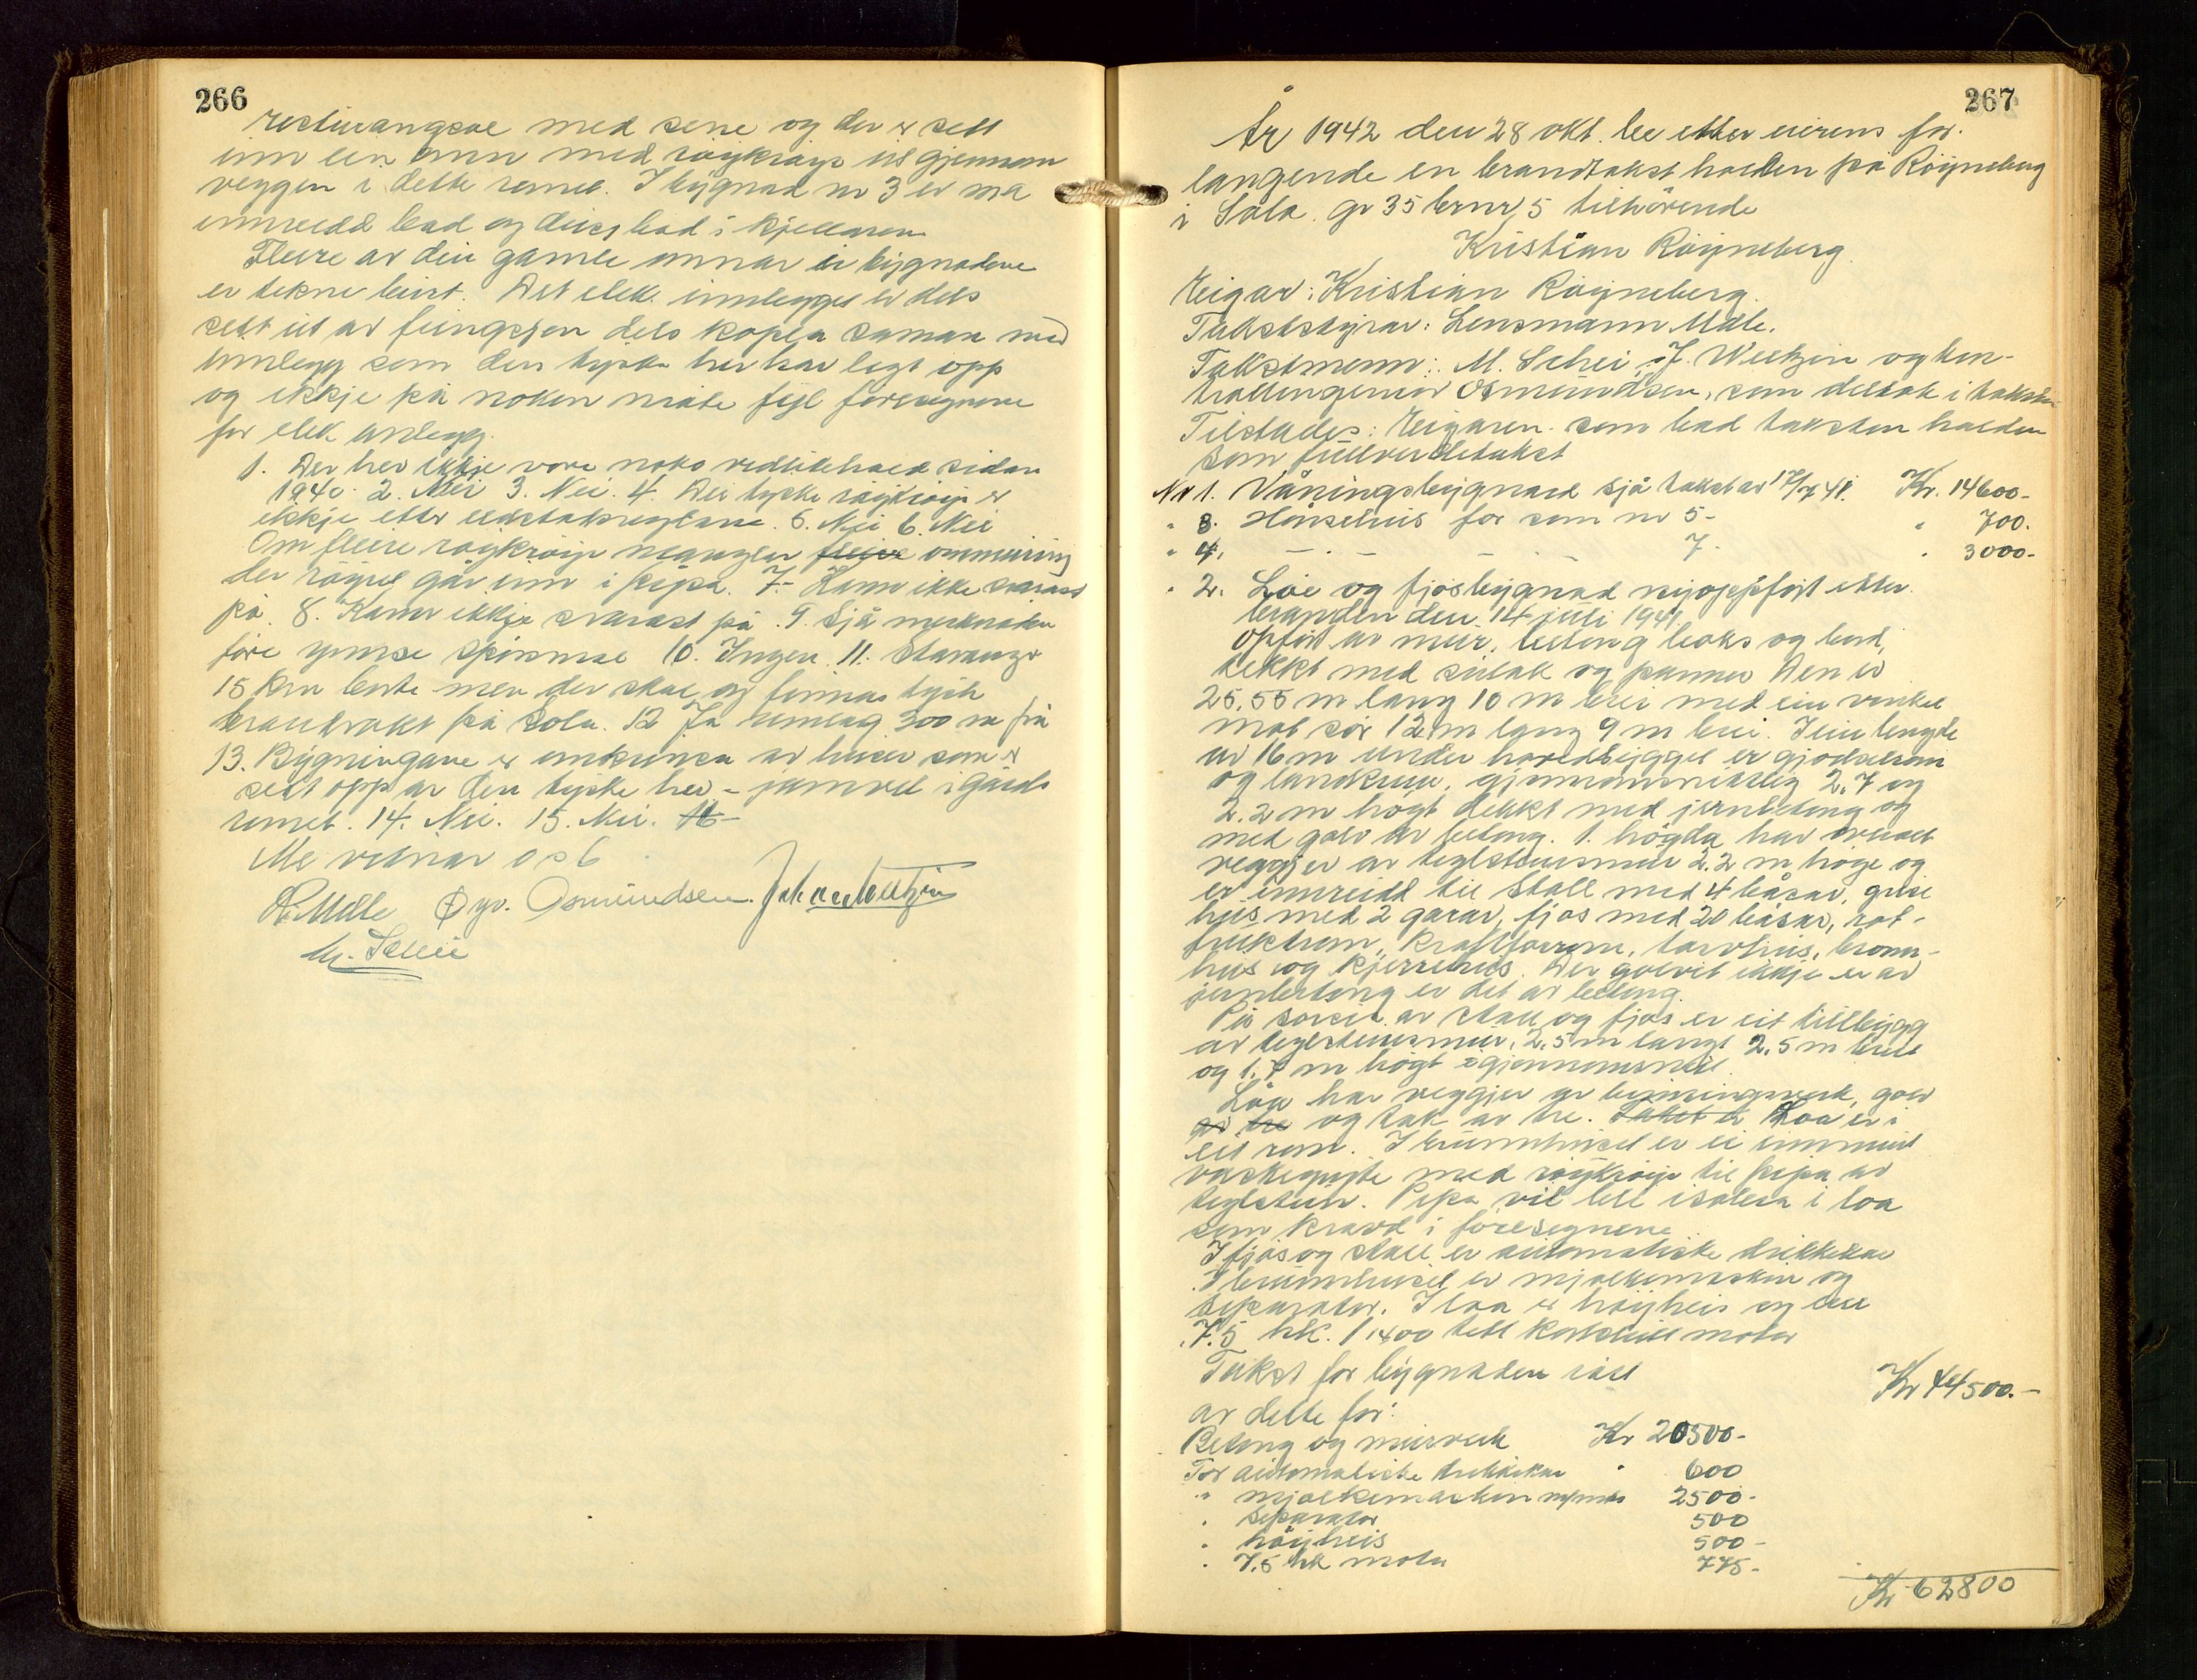 266
resturangsal med scene og der er sett
inn ein omn med røykrøyr ut gjennom
veggen i dette romet. I bygnad nr 3 er og
innreidd bad og disj bad i kjellaren
Fleire av dei gamle omnar i bygnadene
er tekne burt. Det elek. innlegget er dels
sett ut av funksjon dels kopla saman med
innlegg som den tyske her har lagt opp
og ikkje på noken måte fyl foresegnene
for elek anlegg.
1. Der her ikkje vore noko vedlikehald sidan
1940. 2. Nei 3. Nei. 4. Dei tyske røykrøyr er
ikkje etter seksjonsreglane. 5. Nei 6. Nei
Om fleire røykrøyr manglar fleire ommuring
der røyret går inn i pipa. 7. Kann ikke svarast
på. 8. Kann ikkje svarast på. 9. Sjå merknaden
føre ymse spörsmål 10. Ingen. 11. Stavanger
15 km borte men der skal og finnas tysk
brandvakt på Sola. 12 Ja umlag 300 m frå
13. Bygningane er omkrinsa av husir som er
sett opp av den tyske her - jamvel i gards
romet. 14. Nei. 15. Nei. 16-
Me vitnar o s b
A. Mæle Øyv. Osmundsen. Johan Weltzin
M. Schei
267
År 1942 den 28 okt. ble etter eierens for-
langende en brandtakst holden på Røyneberg
i Sola. gr 35 brnr, 5 tilhörende
Kristian Røyneberg.
Eigar: Kristian Røyneberg.
Takststyrar: Lensmann Mæle.
Takstmenn: M. Schei, J. Weltzin og kon-
trollingeniør Osmundsen, som deltok i taksten
Tilstades: Eigaren. som bad taksten halden
som fullverdetakst
Nr 1. Våningsbygnad sjå takst av 17/7 41. Kr. 14600-
" 3. Hönsehus for som nr 5- " 700.
" 4. - . - - . - 7- " 3000-
" 2. Løe og fjøsbygnad nyoppført etter
branden den 14 juli 1941.
Opført av mur, betong bloks og bord,
tekkt med sutak og panner Den er
25,55 m lang 10 m brei med ein vinkel
mot sör 12 m lang 9 m brei. I ein lengde
av 16 m under hovedbygget er gjødselrom
og landkum, gjennomsnittleg 2,7 og
2.2 m høgt dekkt med jernbetong og
med golv av betong. 1. høgda har
veggjer av teglsteinsmur 2.2 m høge og
er innreidd til Stall med 4 båsar, grise
hus med 2 garar, fjøs med 20 båsar, rot-
fruktrom, kraftforrom, torvhus, brønn-
hus og kjerrehus. Der golvet ikkje er av
jernbetong er det av betong.
På sørsida av stall og fjøs er eit tillbygg
av teglsteinsmur, 2,5 m langt 2,5 m breitt
og 1.7 m høgt i gjennomsnitt.
Løa har veggjer av bindingsverk, golv
av tre og tak av tre. Taket er Loa er i
eit rom. I brunnhuset er ei innmurt
vaskegryte med røykrøyr til pipa av
teglstein. Pipa vil bli isolera i loa
som kravd i foresegnene
I fjøs og stall er automatiske drikkekar
I brunnhuset er mjølkemaskin og
separator. I loa er høyheis og ein
7.5 hk. 1400 tell kortslutt motor
Takst for bygnaden i alt Kr 44500.-
av dette for:
Betong og murverk Kr 20500-
For automatiske drikkekar " 600
" mjølkemaskin m/m 2500-
" separator 500
" høyheis 500-
" 7.5 hk motor 775-
Kr 62800